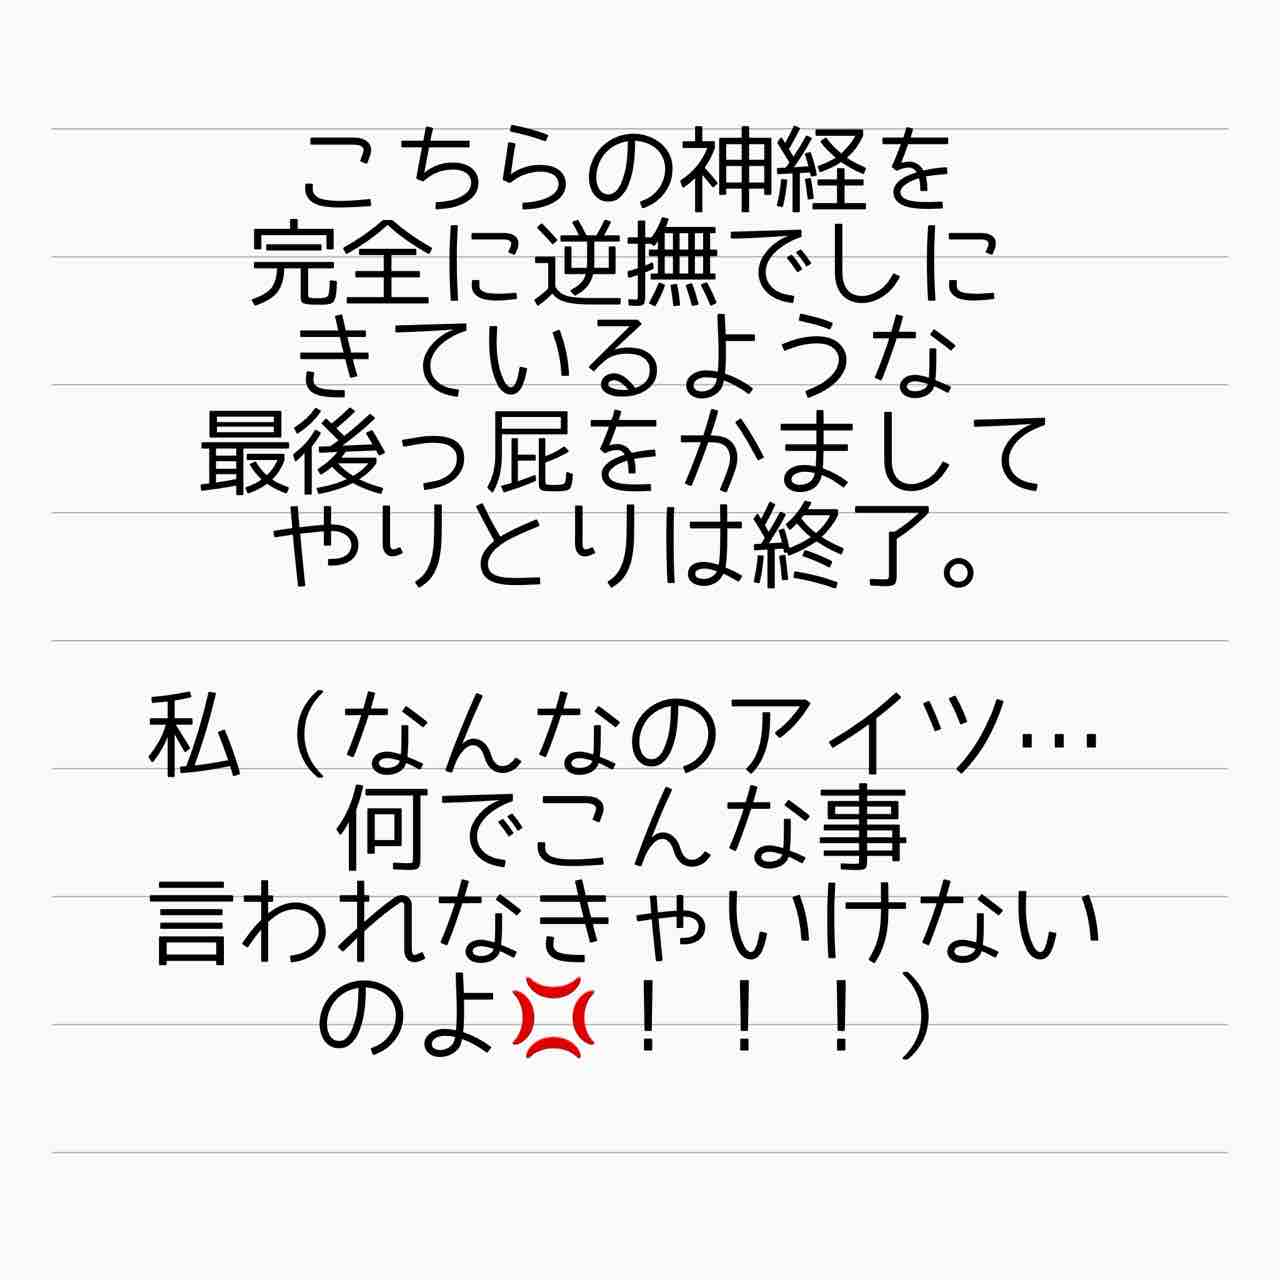 こちらの神経を
完全に逆撫でしに
きているような
最後っ屁をかまして
やりとりは終了。
私（なんなのアイツ…
何でこんな事
言われなきゃいけない
のよ💢！！！）